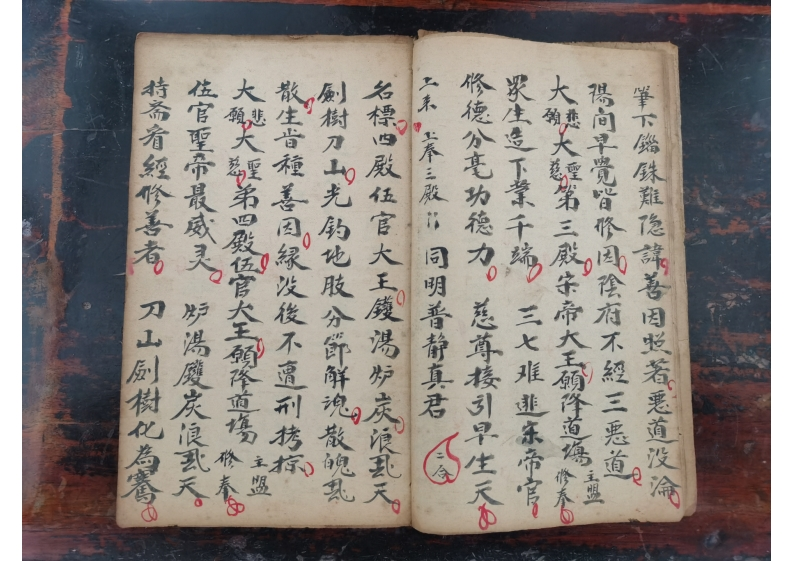 筆下錙銖難隐諱善因照著悪道没淪
陽间早覺皆修因陰府不經三悪道
大悲願大聖慈第三殿宋帝大王願降道塲主盟修奉
眾生造下業千端 三七难逃宋帝官
修德分毫功德力 慈尊接引早生天
上来 上奉三殿 同明普静真君 二合
名標四殿伍官大王鑊湯炉炭浪乱天
劍樹刀山光钓地肢分節解魂散魄乱
散生皆種善因緣没後不遭刑拷掠
大悲願大聖慈第四殿伍官大王願降道塲主盟修奉
伍官聖帝最威灵 炉湯鑊炭浪乱天
持斋看經修善者 刀山劍樹化為騫